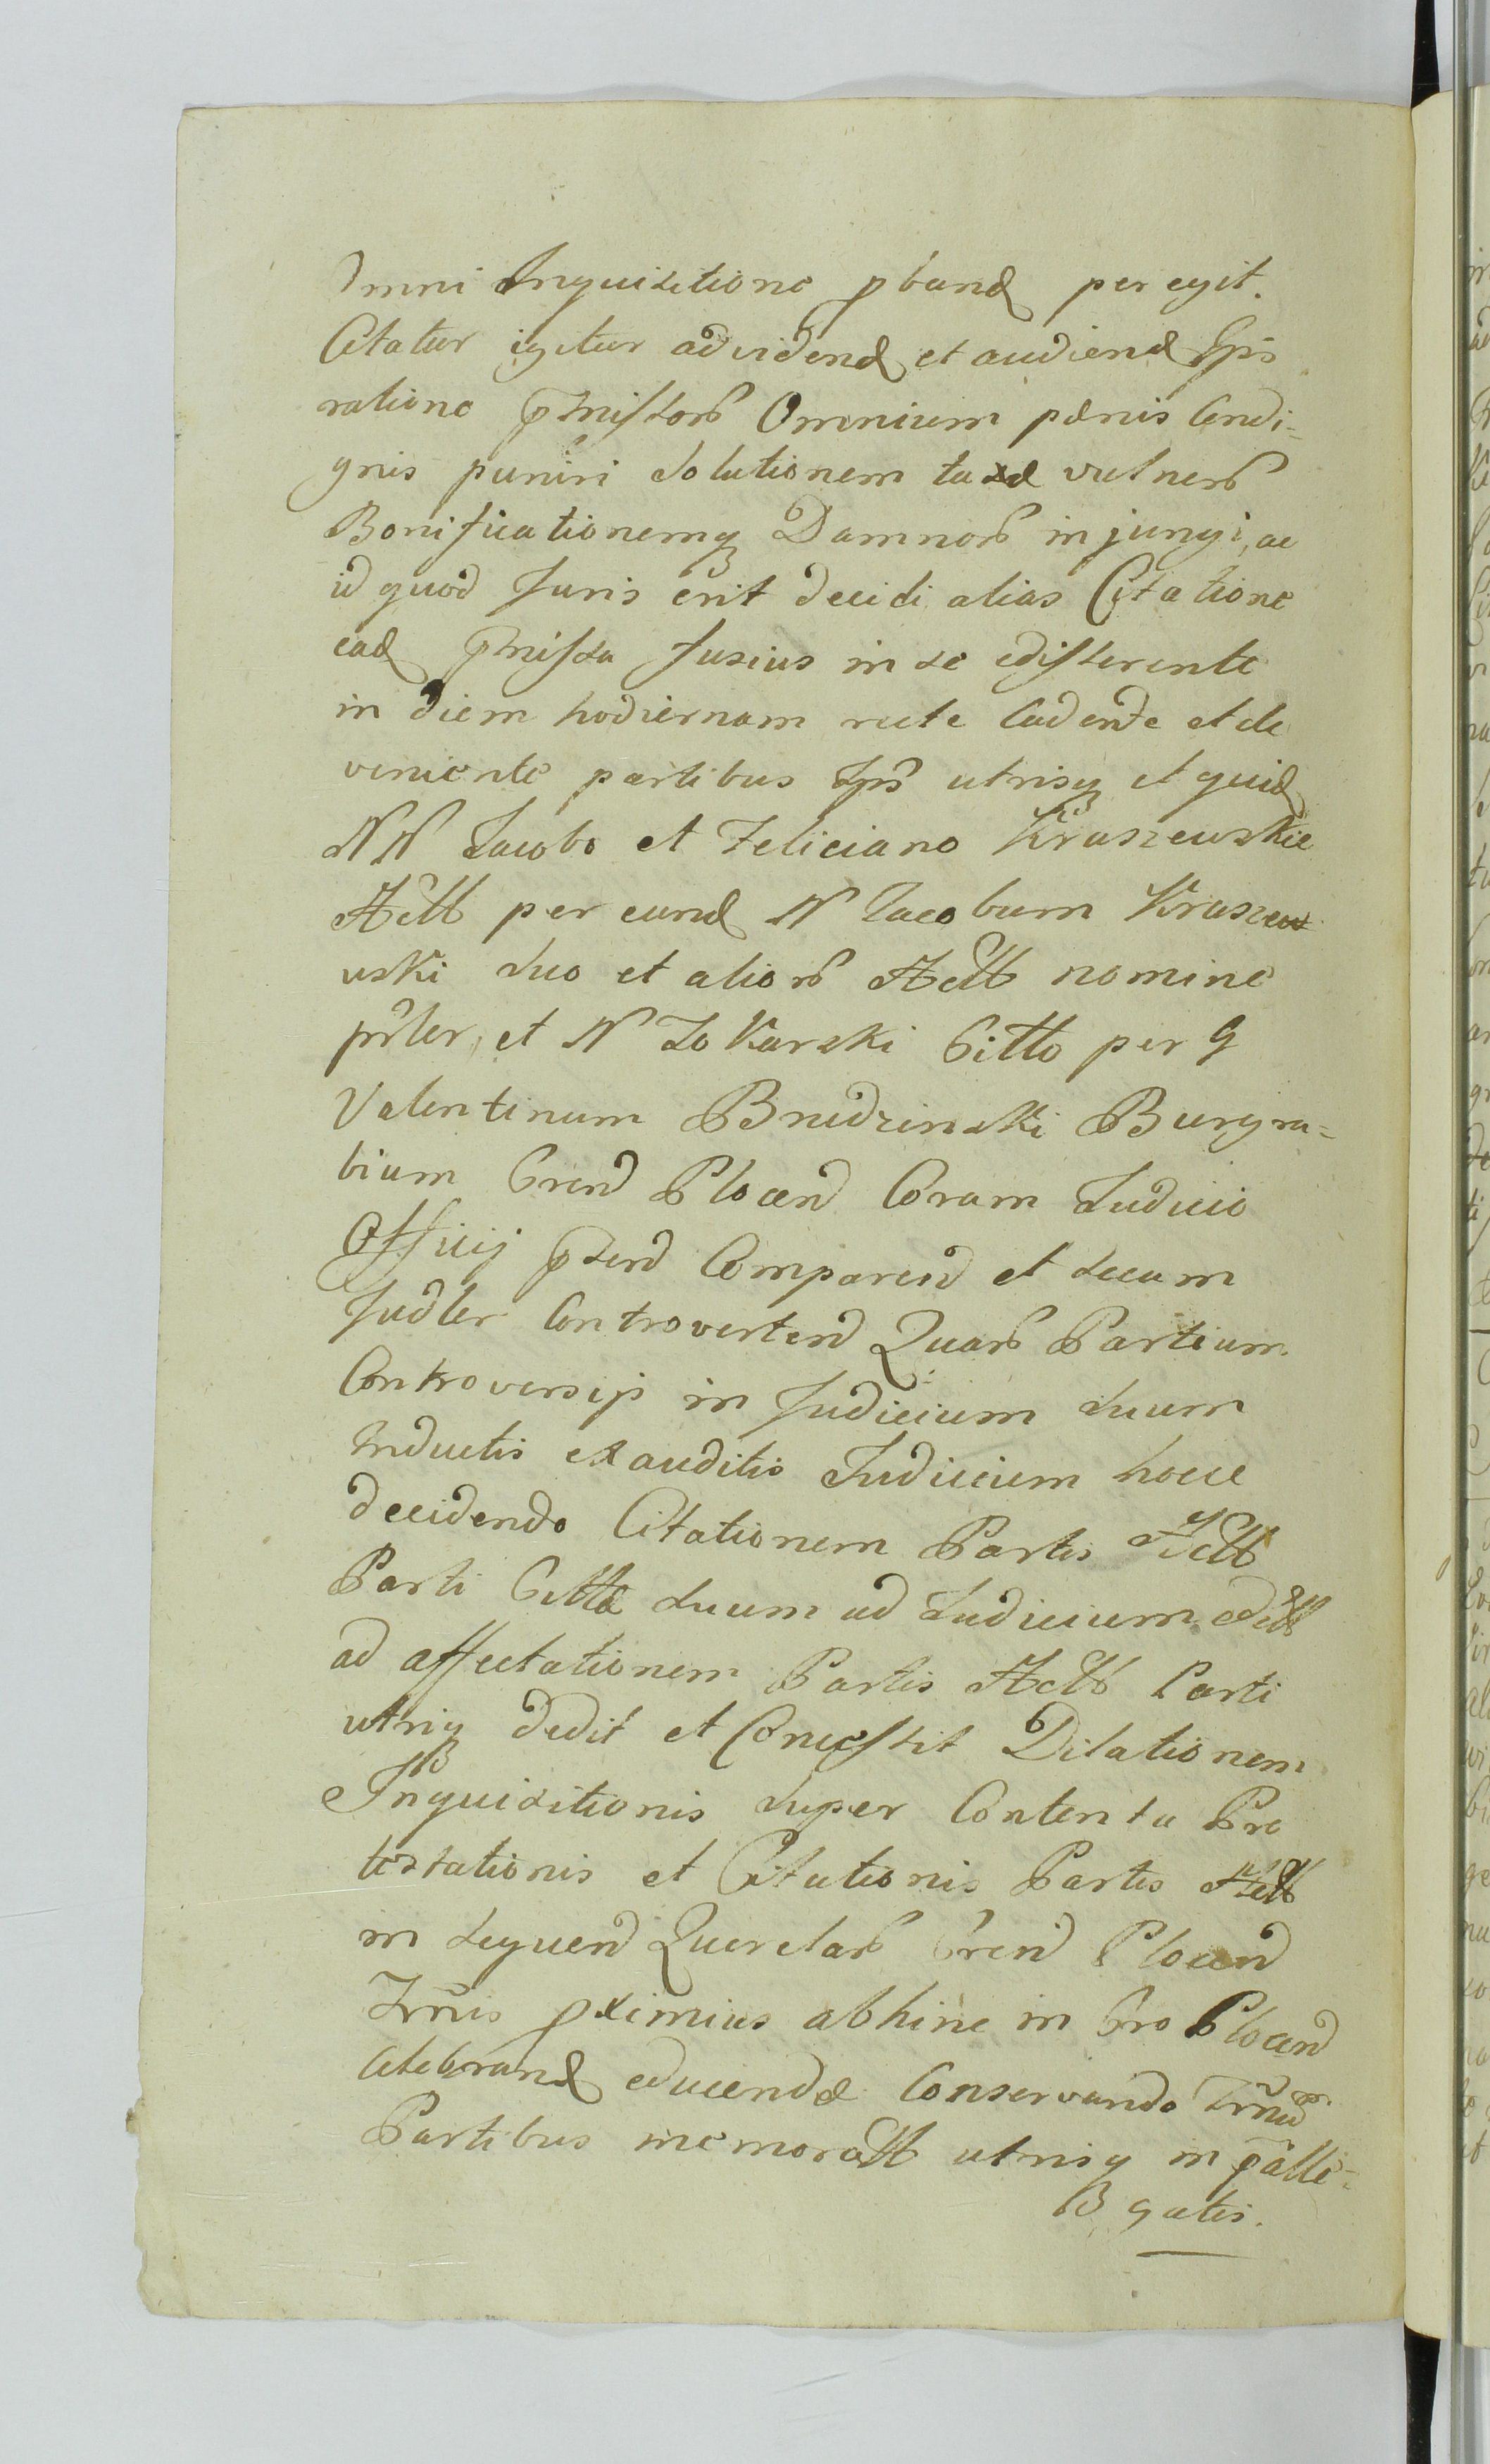 Omni Inquisitione pband peregit.
Citatur igitur ad vidend et audiend Sps
ratione pmissorb Omnium pænis Condi=
gnis puniri solutionem taxæ vulnerb
Bonificationemq Damnorb injungi, ac
id quod Juris erit decidi alias Citatione
ead pmissa fusius in se edisserente
in diem hodiernam recte Cadente et de
veniente partibus Sps utrisq et quid
NN Jacobo et Feliciano Kraszewskie
Actt per eund N Jacobum Kraszew
wski suo et aliorb Actt nomine
prlr, et N Tokarski Citto per G
Valentinum Brudzinski Burgra=
bium Crend Plocend Coram Judicio
Officij psend Comparend et secum
Judler Controvertend Quarb Partium
Controversijs in Judicium suum
Inductis exauditis Judicium hocce
decidendo Citationem Partis Actt
Parti Cittæ suum ad Judicium
ad affectationem Partis Actt Parti
utriq dedit et Concessit Dilationem
Inquisitionis super Contenta Pro
testationis et Citationis Partis Actt
in sequend Querelarb Crend Plocend
Trmis pximius abhinc in Cro Plocend
celebrand educendæ Conservando Trmo
Partibus memoratt utrisq in palle=
gatis.